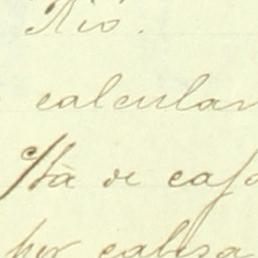 Rio.
calcular
de caf
por cabeça